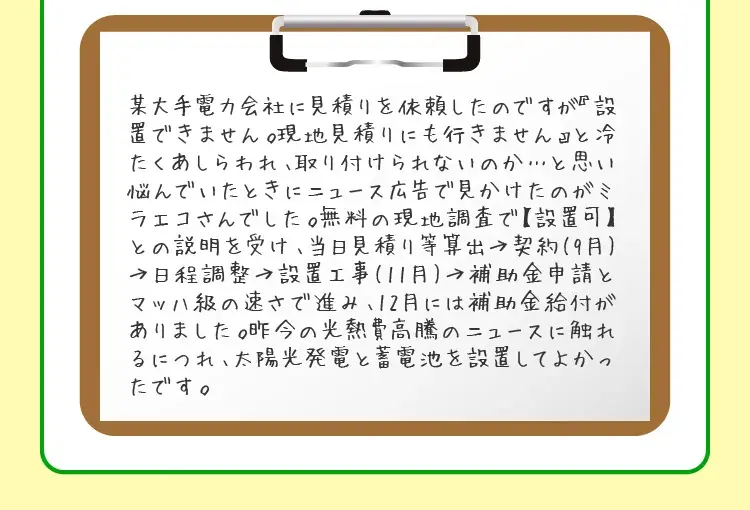 某大手電力会社に見積りを依頼したのですが『設
置できません。現地見積りにも行きません』と冷
たくあしらわれ、取り付けられないのか…と思い
悩んでいたときにニュース広告で見かけたのがミ
ラエコさんでした。無料の現地調査で【設置可】
との説明を受け、当日見積り等算出→契約(9月)
→日程調整→設置工事(11月)→補助金申請と
マッハ級の速さで進み、12月には補助金給付が
ありました。昨今の光熱費高騰のニュースに触れ
るにつれ、太陽光発電と蓄電池を設置してよかっ
たです。